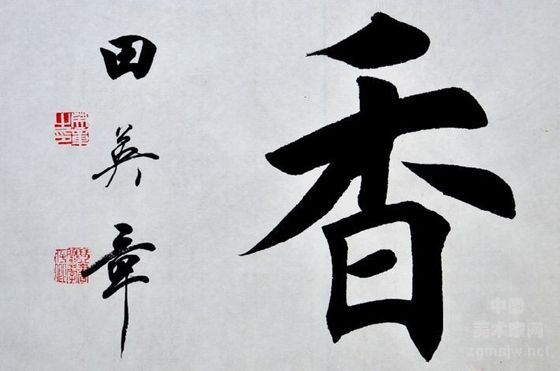 香
田英章
中国
美术家网
zgmsjw.net